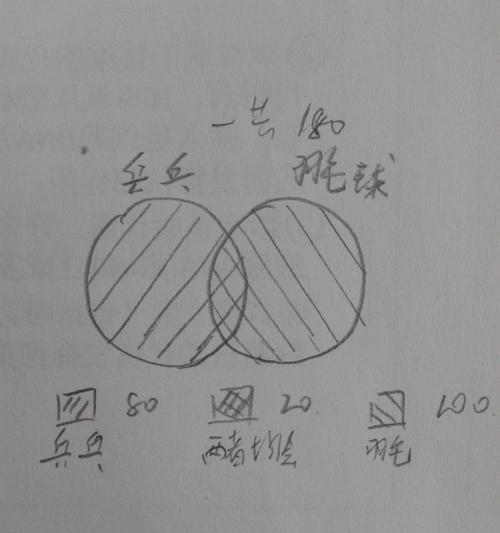 一共 180
乒乓 羽毛球
80 20. 100.
乒乓 两者均会 羽毛